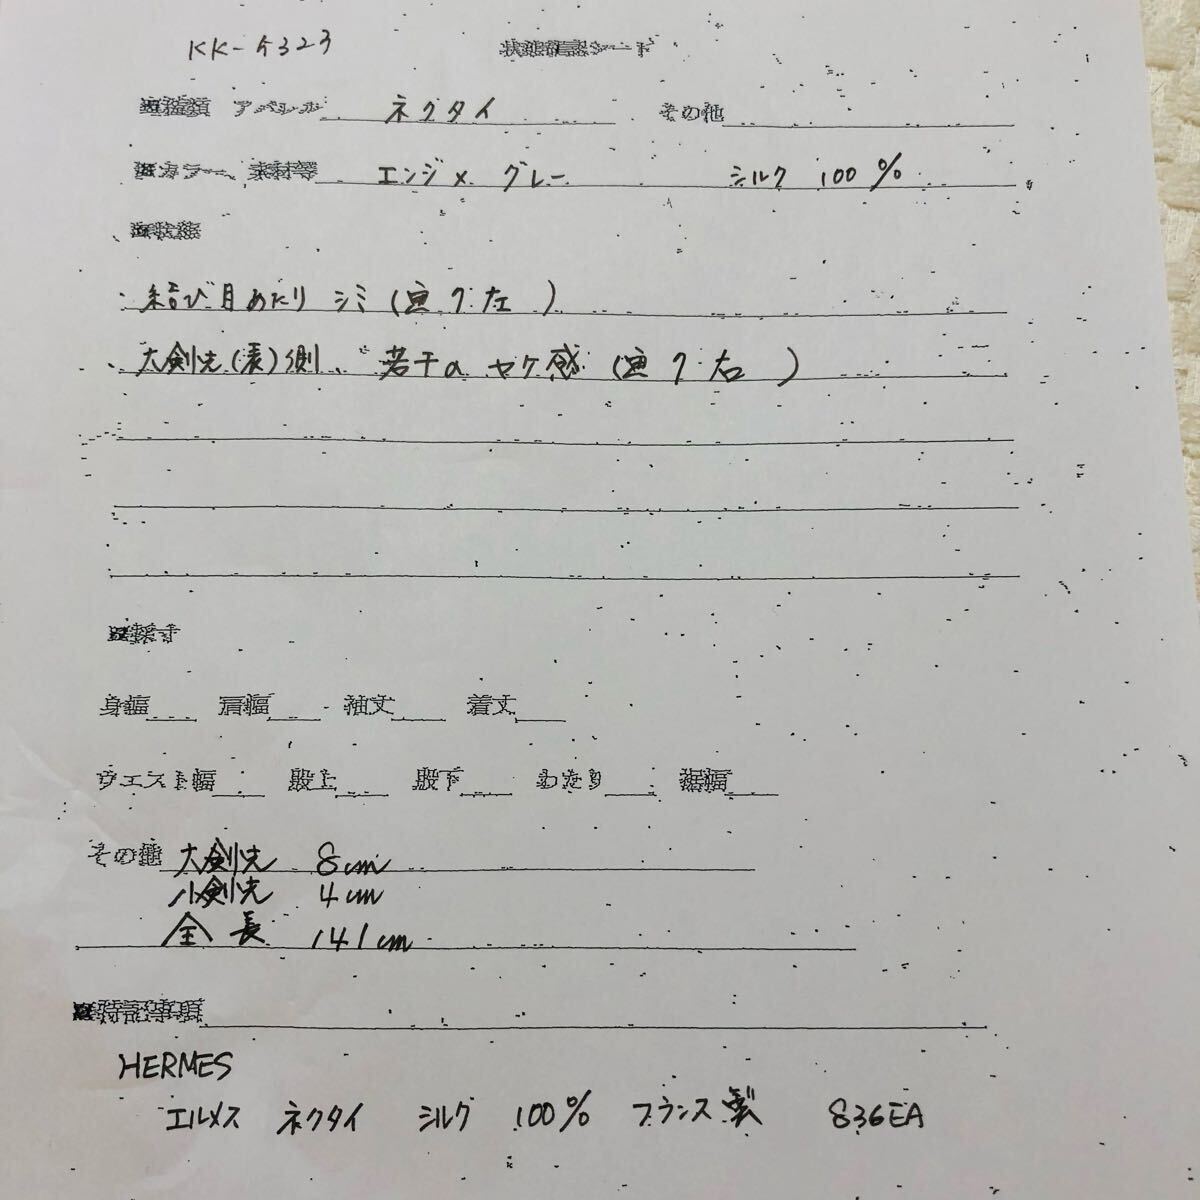 KK-5323 状態確認シート
■種類 アパレル ネクタイ その他
■カラー、素材等 エンジ × グレー シルク 100%
■状態
・結び目あたり シミ(画7.左 )
・大剣先(裏)側、若干の ヤケ感(画7.右 )
■採寸
身幅 肩幅 袖丈 着丈
ウエスト幅 股上 股下 わたり 裾幅
その他 大剣先 8cm
小剣先 4cm
全長 141cm
■特記事項
HERMES
エルメス ネクタイ シルク 100% フランス製 836EA